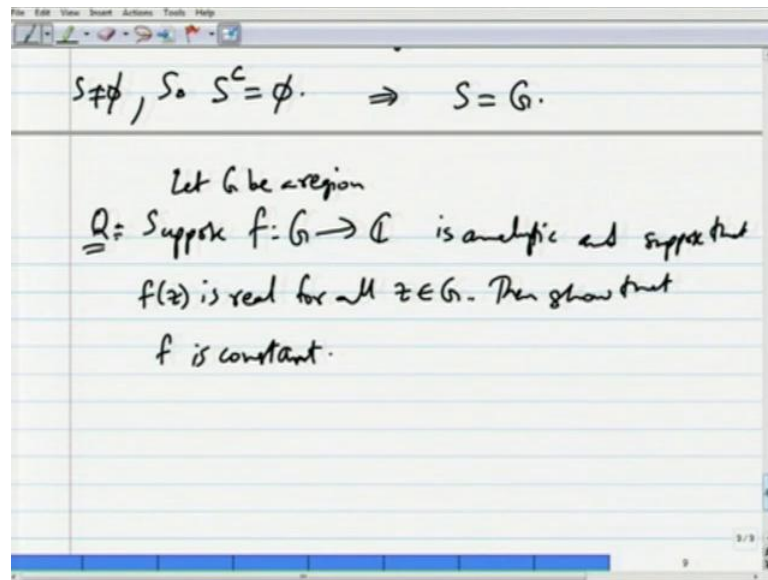 File Edit View Insert Actions Tools Help
S≠ϕ, So Sᶜ=ϕ. ⇒ S = G.
Let G be a region
Q: Suppose f: G → ℂ is analytic and suppose that
f(z) is real for all z ∈ G. Then show that
f is constant.
3/3
9